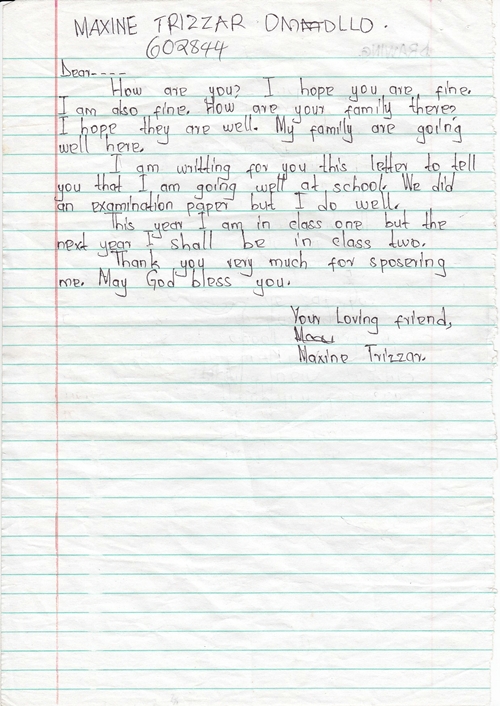 MAXINE TRIZZAR OMOLLO.
602844
Dear----
How are you? I hope you are fine.
I am also fine. How are your family there?
I hope they are well. My family are going
well here.
I am writting for you this letter to tell
you that I am going well at school. We did
an examination paper but I do well.
This year I am in class one but the
next year I shall be in class two.
Thank you very much for sposering
me. May God bless you.
Your Loving friend,
Maxine Trizzar.